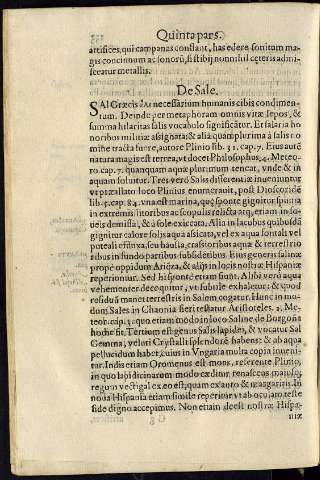 Quinta pars.
artifices, qui campanas constant, has edere sonitum ma
gis concinnum ac sonorū, si stibij nonnihil cęteris admi-
sceatur metallis.
De Sale.
SAl Græcis ἅλς necessarium humanis cibis condimen-
tum. Deinde per metaphoram omnis vitæ lepos, &
summa hilaritas salis vocabulo significātur. Et salaria ho
noribus militiæ assignata, & alia quamplurima à salis no
mine tracta fuere, autore Plinio lib. 31. cap. 7. Eius autē
natura magis est terrea, vt docet Philosophus, 4. Meteo-
ro. cap. 7. quamquam aquæ plurimum teneat, vnde & in
aquam soluitur. Tres verò Salis differentiæ inueniuntur
vt pręallato loco Plinius enumerauit, post Dioscoridē
lib. 5. cap. 84. vna est marina, quę sponte gignitur spuma
in extremis litoribus ac scopulis relicta
ueis demissa, & à sole exiccata. Alia in lacubus quibusdā
gignitur calore solis aqua assiccata, vel ex aqua
puteali effusa, seu hausta, crassioribus aquæ & terrestrio
ribus in fundo partibus subsidentibus. Eius generis salinæ
prope oppidum & alijs in locis nostræ Hispaniæ
reperiuntur. Sed hi sponte etiam fiunt. Aliæ verò aqua
vehementer decoquitur, vt subtile exhaletur: & quod
residuū manet terrestris in Salem cogatur. Hunc in mo-
dum Sales in Chaonia fieri testatur Aristoteles, 2. Me-
teor. cap. 3. quo etiam modo in loco Salinę de Borgoña
hodie fit. Tertium est genus Salis lapidei, & vocatur Sal
Gemma, veluti Crystalli splendorē habens: & ab aqua
pellucidum habet, cuius in Vngaria multa copia inueni-
tur. Indis etiam Oromenus est mons, referente Plinio,
in quo lapidicinarum modo cæditur renascens maiusq;
regum vectigal ex eo est, quam ex auro & margaritis. In
nostra Hispania etiam simile reperiri vt ab oreteste
fide digno accepimus. Non etiam deest nostræ Hispa-
niæ